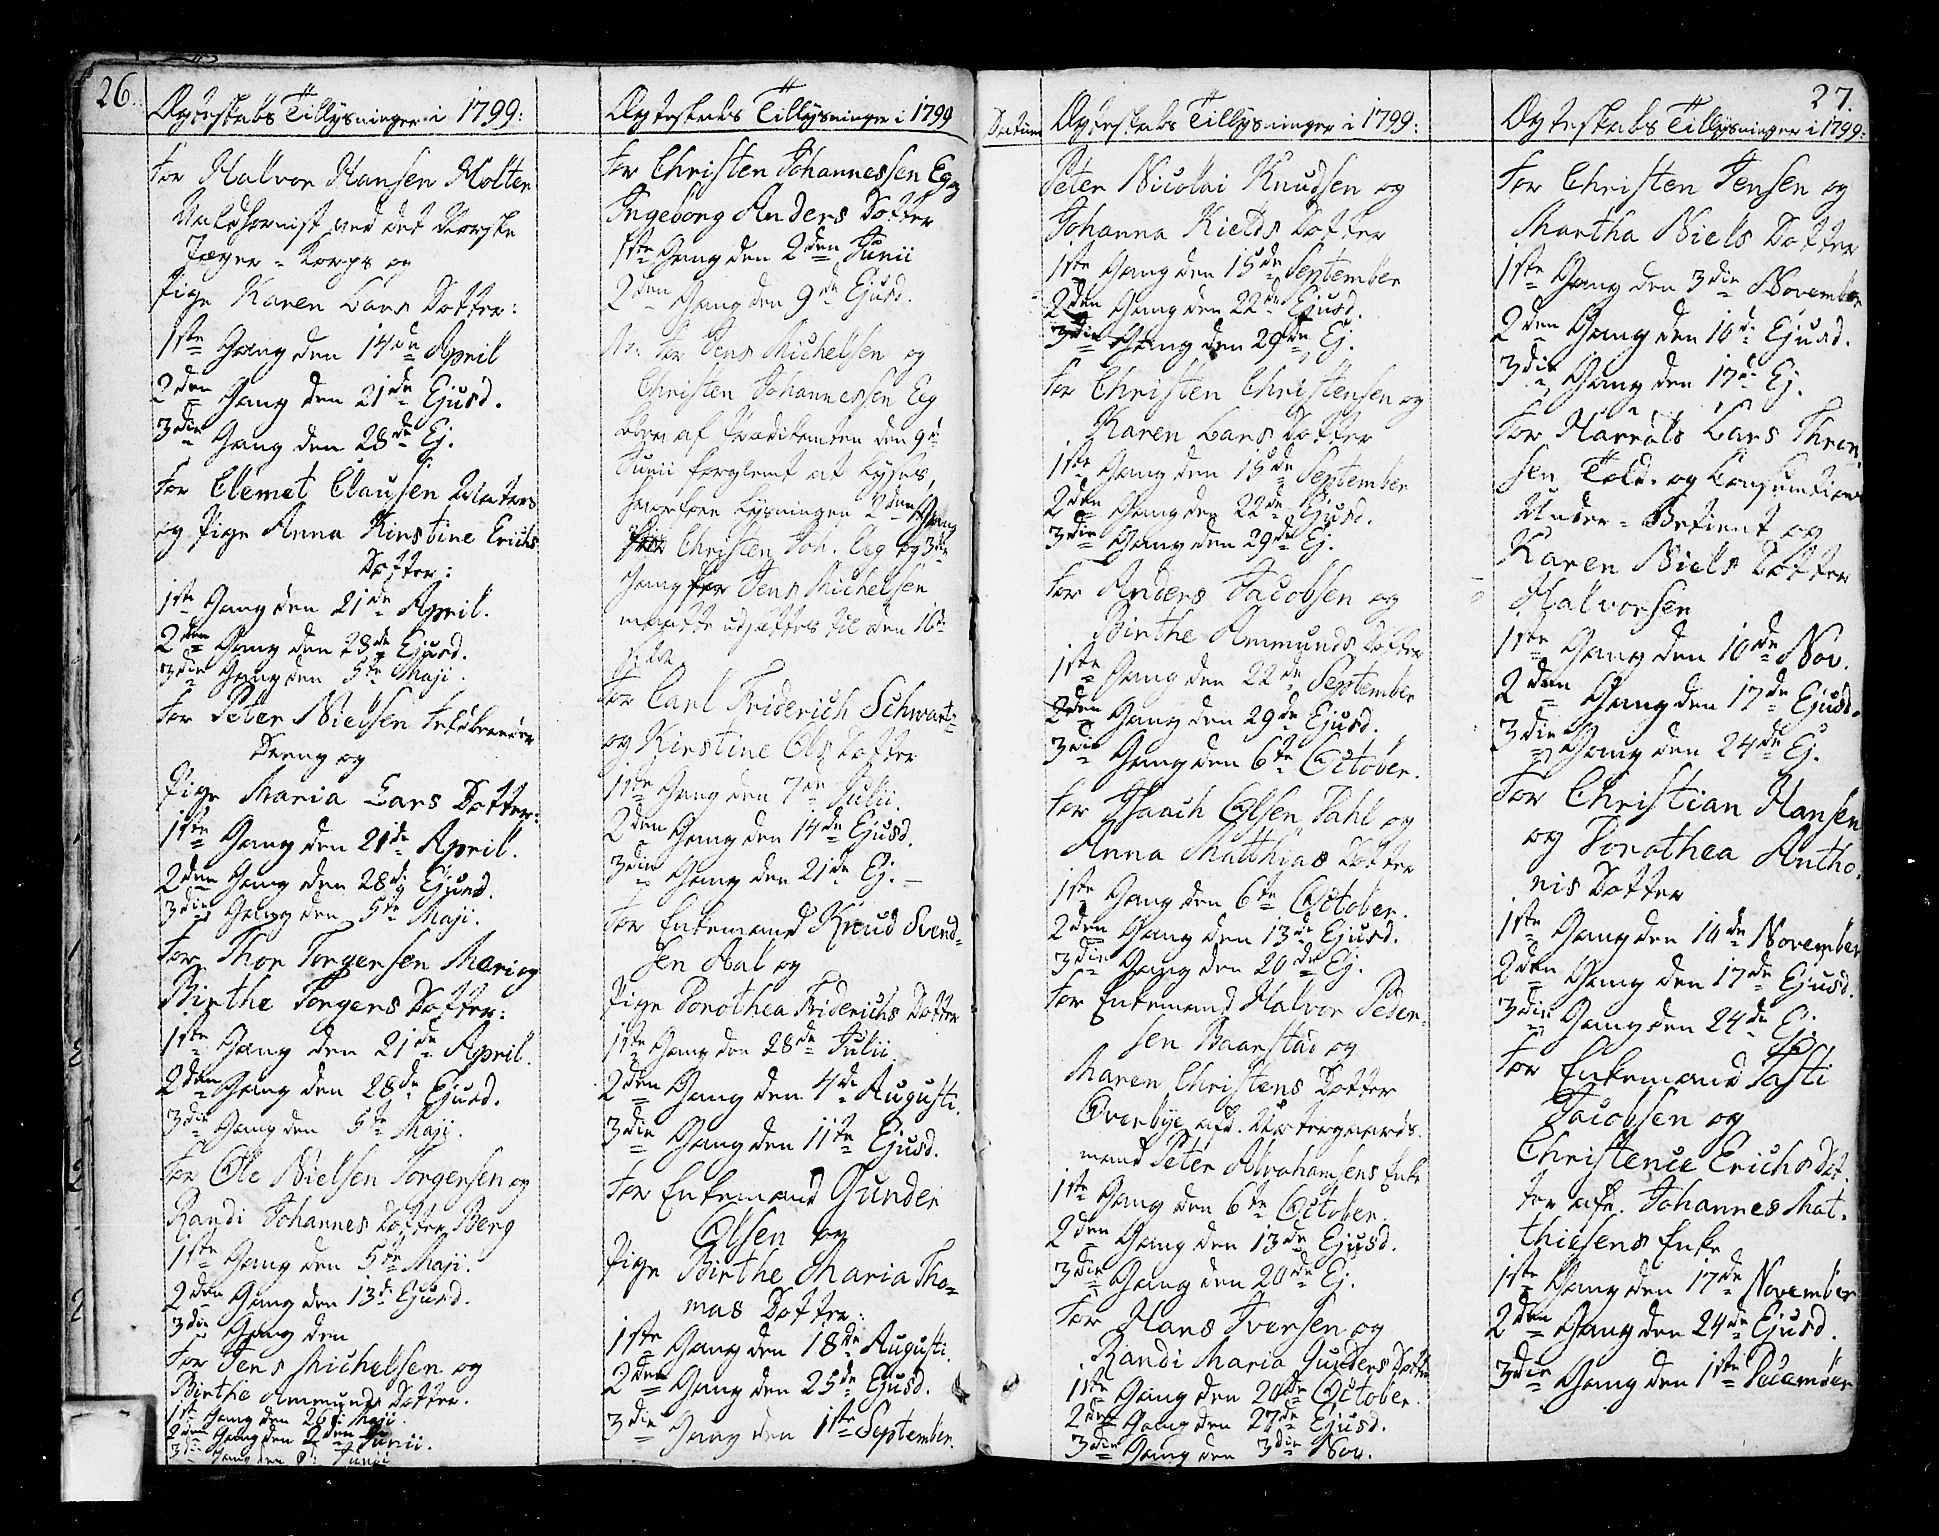 26.
Ægteskabs Tillysninger i 1799:
For Halvor Hansen Holter
Valdhornist ved det Norske
Jæger-Korps og
Pige Karen Lars Dotter:
1ste Gang den 14de April
2den Gang den 21de Ejusd.
3die Gang den 28de Ej.
For Clemet Clausen
og Pige Anna Kirstine Erichs
Dotter:
1ste Gang den 21de April.
2den Gang den 28de Ejusd.
3die Gang den 5te Maji.
For Peter Nielsen
Dreng og
Pige Maria Lars Dotter:
1ste Gang den 21de April.
2den Gang den 28de Ejusd.
3die Gang den 5te Maji.
For Thor Torgersen Meri og
Birthe Torgers Dotter:
1ste Gang den 21de April.
2den Gang den 28de Ejusd.
3die Gang den 5te Maji.
For Ole Nielsen Torgersen og
Randi Johannes Dotter Berg
1ste Gang den 5te Maji.
2den Gang den 13de Ejusd.
3die Gang den
For Jens Michelsen og
Birthe Ammunds Dotter.
1ste Gang den 26de Maji.
2den Gang den 2den Junii.
3die Gang den Junii
Ægteskabs Tillysninger i 1799
For Christen Johannessen Eeg og
Ingeborg Anders Dotter
1ste Gang den 2den Junii
2den Gang den 9de Ejusd.
For Jens Michelsen og
Christen Johannessen Eeg
blev af Præditanten den 9de
Junii forglemt at lyses,
hvorfore Lysningen 2den Gang
for Christen Joh. Eeg og 3die
Gang for Jens Michelsen
maatte udsættes til den 16de
For Carl Friderich Schwartz
og Kirstine Ols Dotter
1ste Gang den 7de Julii.
2den Gang den 14de Ejusd.
3die Gang den 21de Ej. —
For Enkemand Knud Svend-
sen Aal og
Pige Dorothea Friderichs Dotter
1ste Gang den 28de Julii.
2den Gang den 4de Augusti.
3die Gang den 11te Ejusd.
For Enkemand Gunder
Olsen og
Pige Birthe Maria Tho-
mas Dotter:
1ste Gang den 18de Augusti.
2den Gang den 25de Ejusd.
3die Gang den 1ste September.
Datum
Ægteskabs Tillysninger i 1799:
Peter Nicolai Knudsen og
Johanna Kields Dotter
1ste Gang den 15de September
2den Gang den 22de Ejusd.
3die Gang den 29de Ej.
For Christen Christensen og
Karen Lars Dotter
1ste Gang den 15de September
2den Gang den 22de Ejusd.
3die Gang den 29de Ej.
For Anders Jacobsen og
Birthe Ammunds Dotter
1ste Gang den 22de September
2den Gang den 29de Ejusd.
3die Gang den 6te October.
For Isaach Olsen Dahl og
Anna Matthias Dotter
1ste Gang den 6te October.
2den Gang den 13de Ejusd.
3die Gang den 20de Ej.
For Enkemand Halvor Peder-
sen Baarstad og
Maren Christens Dotter
Overbye afd.
mand Peter Abrahamsens Enke
1ste Gang den 6te October.
2den Gang den 13de Ejusd.
3die Gang den 20de Ej.
For Hans Iversen og
Randi Maria Gunders Dotter
1ste Gang den 20de October.
2den Gang den 27de Ejusd.
3die Gang den 3die Nov.
27.
Ægteskabs Tillysninger i 1799:
For Christen Jensen og
Martha Niels Dotter
1ste Gang den 3die November
2den Gang den 10de Ejusd.
3die Gang den 17de Ej.
For Lars Thron-
sen Told- og Consumtions
Under-Betient og
Karen Niels Dotter
Halvorsen
1ste Gang den 10de Nov.
2den Gang den 17de Ejusd.
3die Gang den 24de Ej.
For Christian Hansen
og Dorothea Antho-
nis Dotter
1ste Gang den 10de November
2den Gang den 17de Ejusd.
3die Gang den 24de Ej.
For Enkemand
Jacobsen og
Christence Erichs Dot-
ter afd. Johannes Mat-
thiesens Enke
1ste Gang den 17de November
2den Gang den 24de Ejusd.
3die Gang den 1ste December